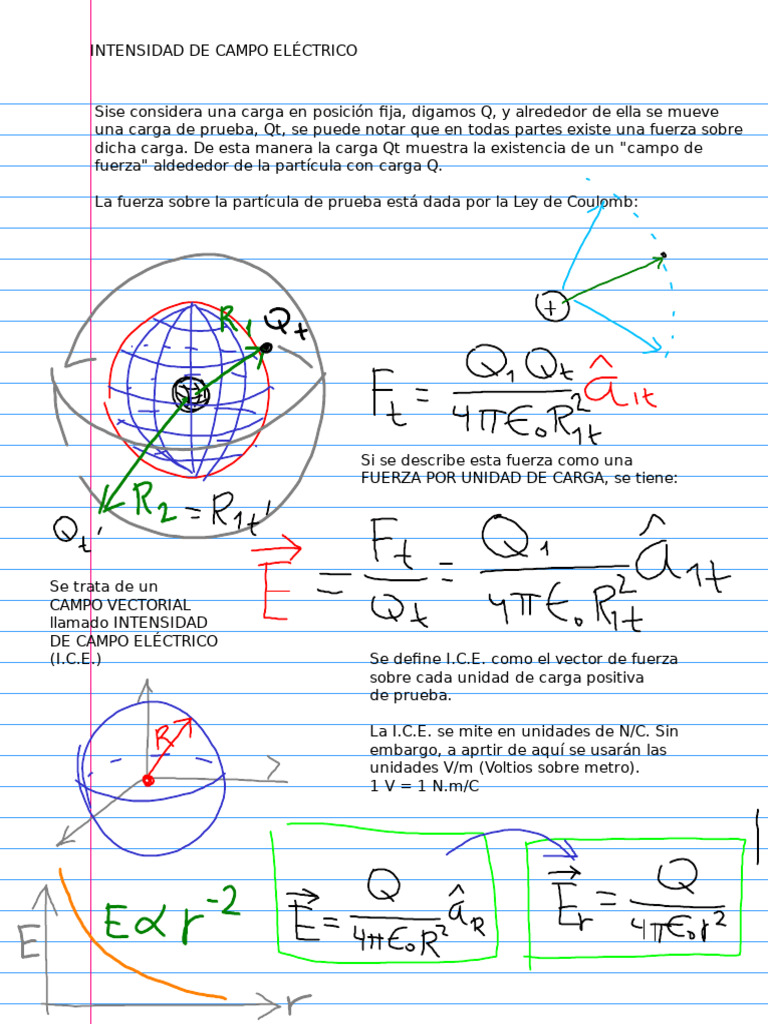 INTENSIDAD DE CAMPO ELÉCTRICO
Sise considera una carga en posición fija, digamos Q, y alrededor de ella se mueve
una carga de prueba, Qt, se puede notar que en todas partes existe una fuerza sobre
dicha carga. De esta manera la carga Qt muestra la existencia de un "campo de
fuerza" aldededor de la partícula con carga Q.
La fuerza sobre la partícula de prueba está dada por la Ley de Coulomb:
+
R₁ Qt
Ft = Q₁Qt / 4πϵ₀R₁t² â₁t
Si se describe esta fuerza como una
FUERZA POR UNIDAD DE CARGA, se tiene:
R₂ = R₁t'
Qt'
E⃗ = Ft / Qt = Q₁ / 4πϵ₀R₁t² â₁t
Se trata de un
CAMPO VECTORIAL
llamado INTENSIDAD
DE CAMPO ELÉCTRICO
(I.C.E.)
Se define I.C.E. como el vector de fuerza
sobre cada unidad de carga positiva
de prueba.
R
La I.C.E. se mite en unidades de N/C. Sin
embargo, a aprtir de aquí se usarán las
unidades V/m (Voltios sobre metro).
1 V = 1 N.m/C
E ∝ r⁻²
E⃗ = Q / 4πϵ₀R² âR
E⃗r = Q / 4πϵ₀r²
E
r